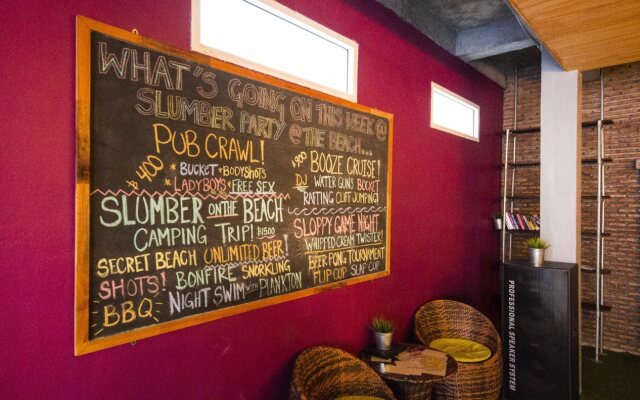 WHAT'S GOING ON THIS WEEK @
SLUMBER PARTY @ THE BEACH...
PUB CRAWL!
฿400 * BUCKET + BODYSHOTS
* LADYBOYS * FREE SEX
SLUMBER ON THE BEACH
CAMPING TRIP! ฿1500
SECRET BEACH UNLIMITED BEER!
SHOTS! BONFIRE SNORKLING
BBQ NIGHT SWIM WITH PLANKTON
฿900 BOOZE CRUISE!
DJ WATER GUNS BUCKET
RAFTING CLIFF JUMPING!
SLOPPY GAME NIGHT
WHIPPED CREAM TWISTER!
BEER PONG TOURNAMENT
FLIP CUP SLAP CUP
PROFESSIONAL SPEAKER SYSTEM